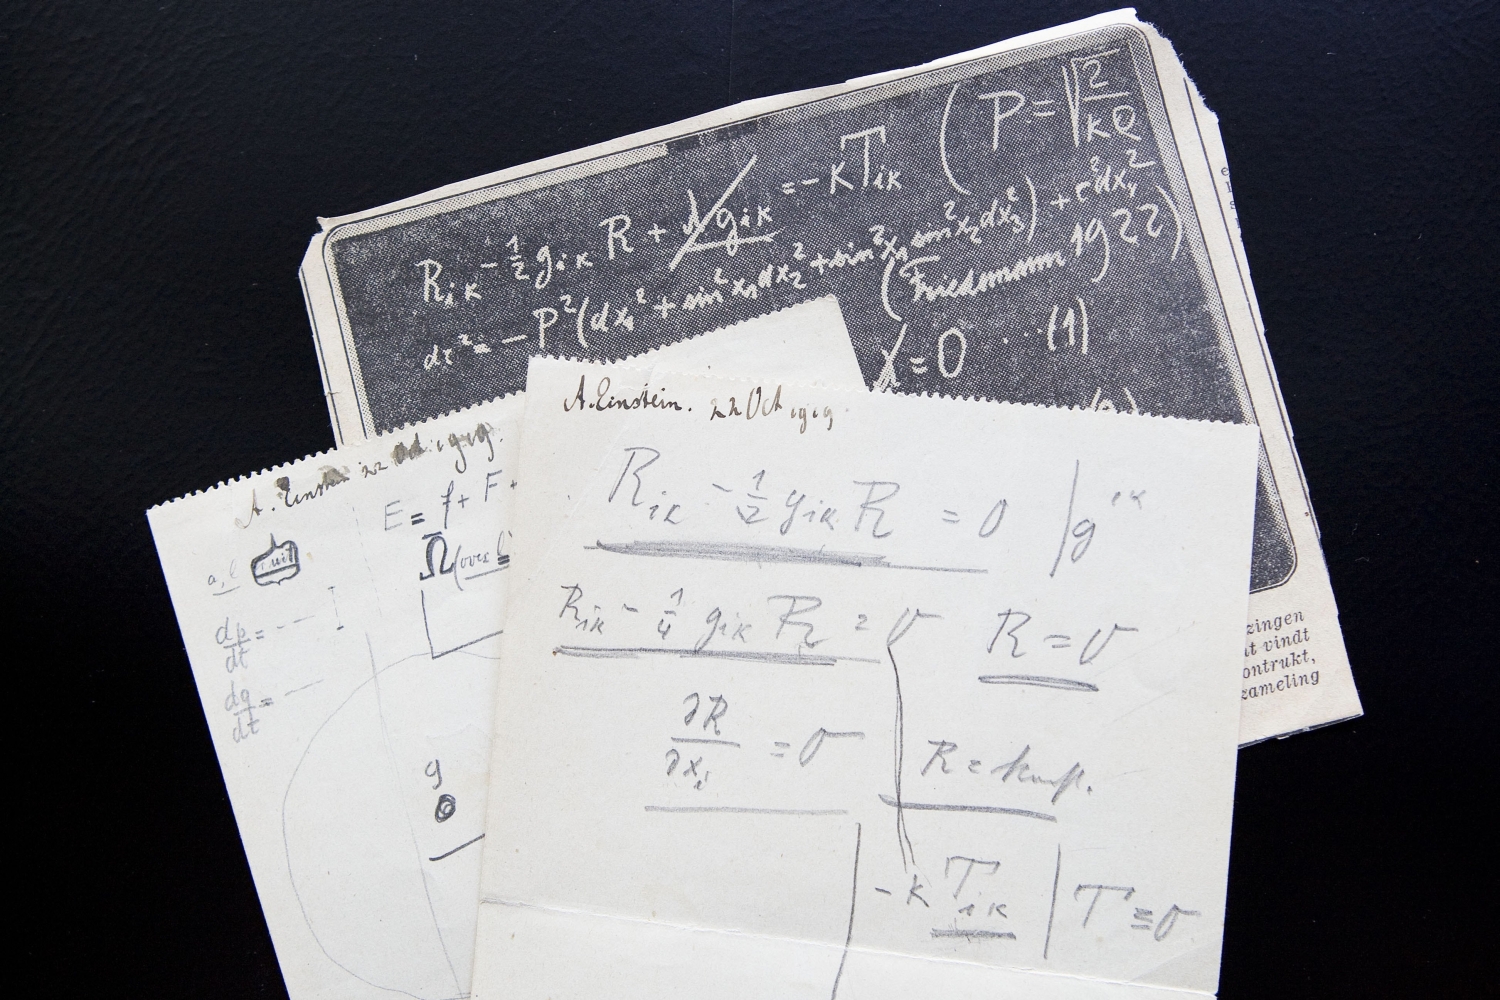 R_ik - 1/2 g_ik R + λ g_ik = -κT_ik (P = √(2/κρ)
dτ² = -P²(dx₁² + sin²x₁dx₂² + sin²x₁ sin²x₂dx₃²) + c²dx₄²
(Friedmann 1922)
= 0 . . . (1)
zingen
vindt
ontrukt,
zameling
A. Einstein 22 Oct. 1919.
E = f + F +
a, l
dp/dt = - -
dq/dt = - -
g
A. Einstein. 22 Oct 1919.
R_ik - 1/2 g_ik R = 0 | g^ik
R_ik - 1/4 g_ik R = 0 R = 0
∂R/∂x_i = 0 R = konst.
-κ T_ik | T = 0